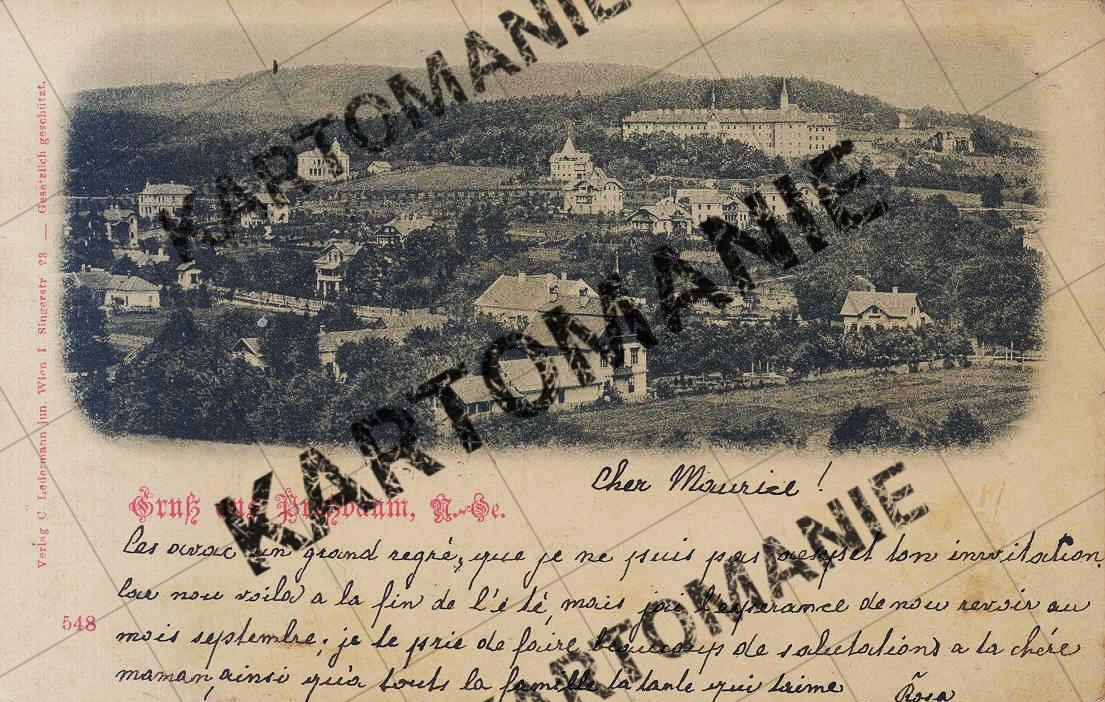 KARTOMANIE
KARTOMANIE
KARTOMANIE
KARTOMANIE
Verlag C. Ledermann jun. Wien I Singerstr 23 — Gesetzlich geschützt.
Gruß aus Preßbaum, N.-Oe.
548
Cher Maurice!
Ces avac un grand regré, que je ne puis pas acepset ton inrvitation,
Car nou voila a la fin de l'é té, mais jai l'esperance de nou revoir au
mois septembre, je te prie de faire beaucoup de salutations a ta chére
maman, ainsi qu'a touts la famille ta tante qui t'aime
Rosa